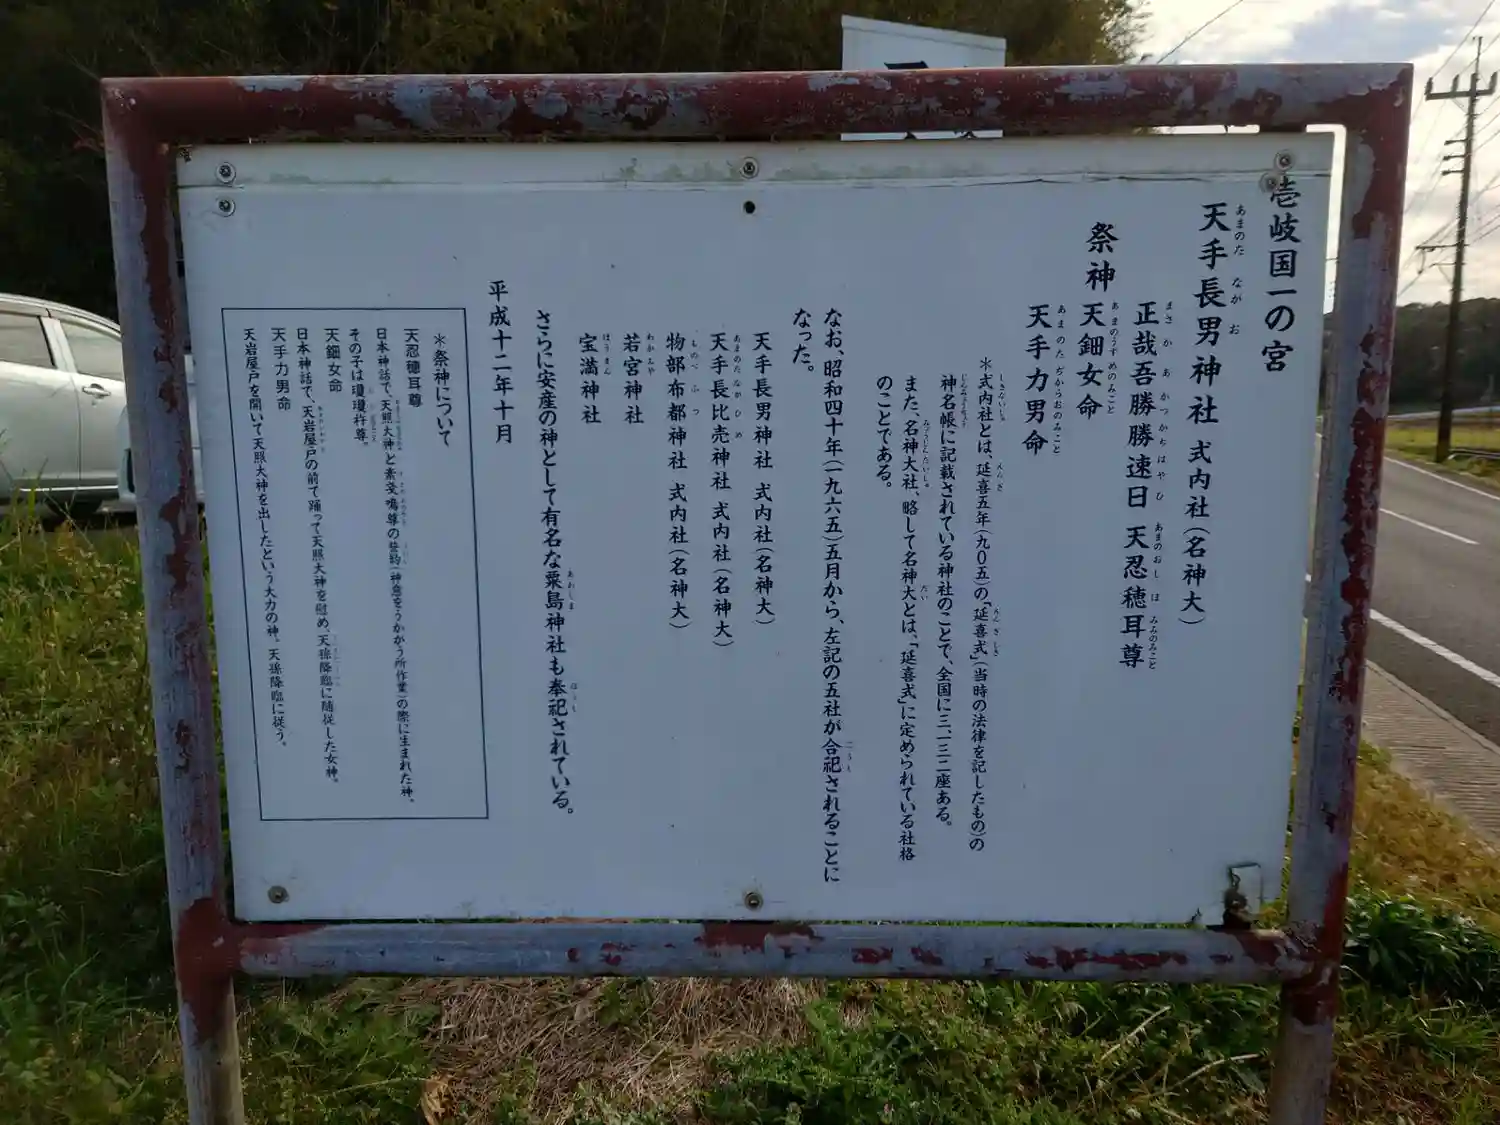 壱岐国一の宮
天手長男神社 式内社(名神大)
あまのた ながお
祭神
正哉吾勝勝速日 天忍穂耳尊
まさかあかつかちはやひ あまのおしほみみのみこと
天鈿女命
あまのうずめのみこと
天手力男命
あまのたぢからおのみこと
*式内社とは、延喜五年(九〇五)の「延喜式」(当時の法律を記したもの)の
神名帳に記載されている神社のことで、全国に三、一三二座ある。
また、名神大社、略して名神大とは、「延喜式」に定められている社格
のことである。
なお、昭和四十年(一九六五)五月から、左記の五社が合祀されることに
なった。
天手長男神社 式内社(名神大)
天手長比売神社 式内社(名神大)
あまのたながひめ
物部布都神社 式内社(名神大)
若宮神社
わかみや
宝満神社
ほうまん
さらに安産の神として有名な粟島神社も奉祀されている。
あわしま
平成十二年十月
*祭神について
天忍穂耳尊
日本神話で、天照大神と素戔嗚尊の誓約(神意をうかがう所作業)の際に生まれた神。
その子は瓊瓊杵尊。
天鈿女命
日本神話で、天岩屋戸の前で踊って天照大神を慰め、天孫降臨に随従した女神。
天手力男命
天岩屋戸を開いて天照大神を出したという大力の神。天孫降臨に従う。